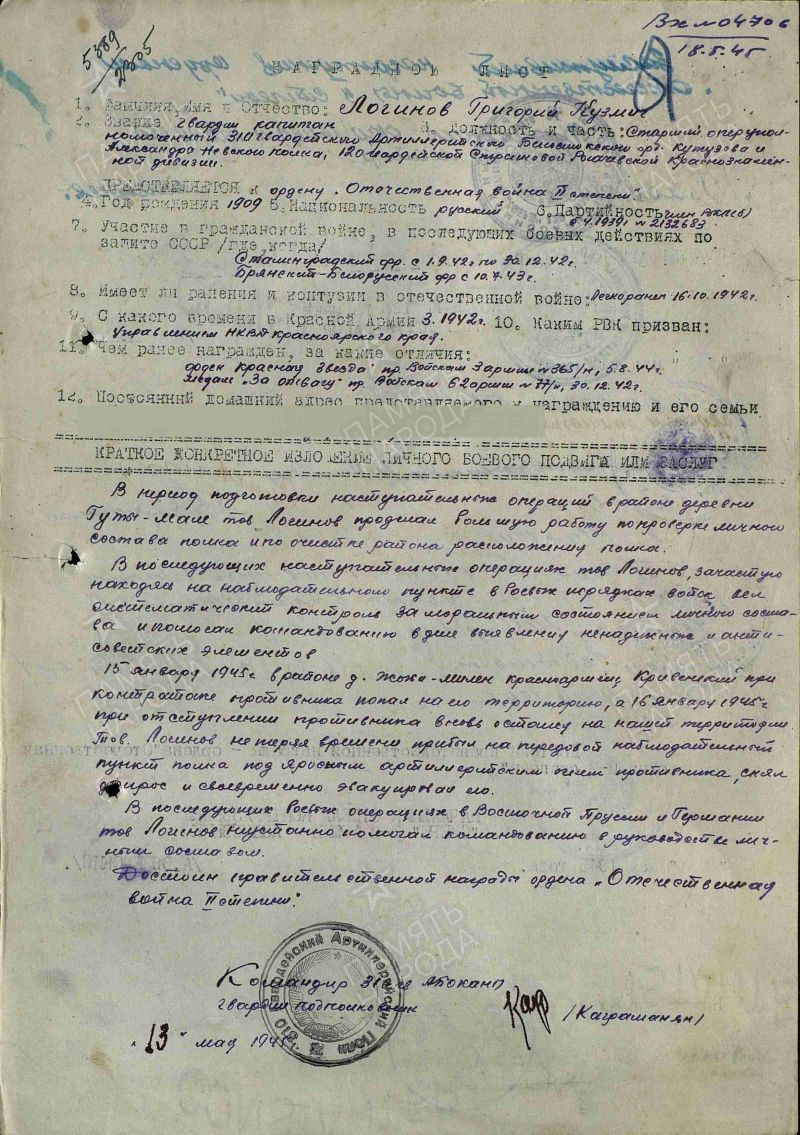 Вх № 04706
18.5.45
5389
2305
НАГРАДНОЙ ЛИСТ
1. Фамилия, Имя и Отчество: Логинов Григорий Кузмич
2. Звание гвардии капитан 3. Должность и часть: Старший оперупол-
номоченный 310 гвардейского Артиллерийского Белостокского орд. Кутузова и
Александра Невского полка, 120 гвардейской Стрелковой Рогачевской Краснознамен-
ной дивизии.
ПРЕДСТАВЛЯЕТСЯ к ордену "Отечественная война II степени".
4. Год рождения 1909 5. Национальность русский 6. Партийность член ВКП(б)
с 4.1939г. № 2132683
7. Участие в гражданской войне, в последующих боевых действиях по
защите СССР /где, когда/
Сталинградский фр. с 1.9.42г. по 30.12.42г.
Брянский-Белорусский фр с 10.7.43г.
8. Имеет ли ранения и контузии в отечественной войне: Легкоранен 16.10.1942г.
9. С какого времени в Красной Армии 3.1942г. 10. Каким РВК призван:
Управлением НКВД Красноярского края.
11. Чем ранее награжден, за какие отличия:
орден Красная Звезда пр. Войскам 3 армии № 365/н, 5.8.44г.
Медаль "За отвагу" пр. Войскам 62 армии № 77/н, 30.12.42г.
12. Постоянный домашний адрес представляемого к награждению и его семьи
КРАТКОЕ КОНКРЕТНОЕ ИЗЛОЖЕНИЕ ЛИЧНОГО БОЕВОГО ПОДВИГА ИЛИ ЗАСЛУГ
В период подготовки наступательных операций в районе деревни
Гуты-Мале тов Логинов проделал большую работу по проверке личного
состава полка и по очистке района расположения полка.
В последующих наступательных операциях тов Логинов, зачастую
находяс на наблюдательном пункте в боевых порядках войск вел
систематический контроль за моральным состоянием личного соста-
ва и помогал командованию в деле выявлению ненадежных и анти-
советских элементов
15 января 1945г в районе д. Жохи-Милен красноармеец Кривенкий при
контратаке противника попал на его территорию, а 16 января 1945г
при отступлении противника вновь осталсу на нашей территории.
Тов. Логинов не теряя времени прибыл на передовой наблюдательный
пункт полка под яросным артиллерийским огнем противника, снял
допрос и своевременно эвакуировал его.
В последующих боевых операциях в Восточной Пруссии и Германии
тов Логинов неустанно помогал командованию в руководстве лич-
ным составом.
Достоин правительственной награды ордена "Отечественная
война II степени".
Командир 310 гв
гвардии подполковник /Каграманян/
"13" мая 1945г.
310 Гвардейский Артиллерийский Полк
ПАМЯТЬ
НАРОДА